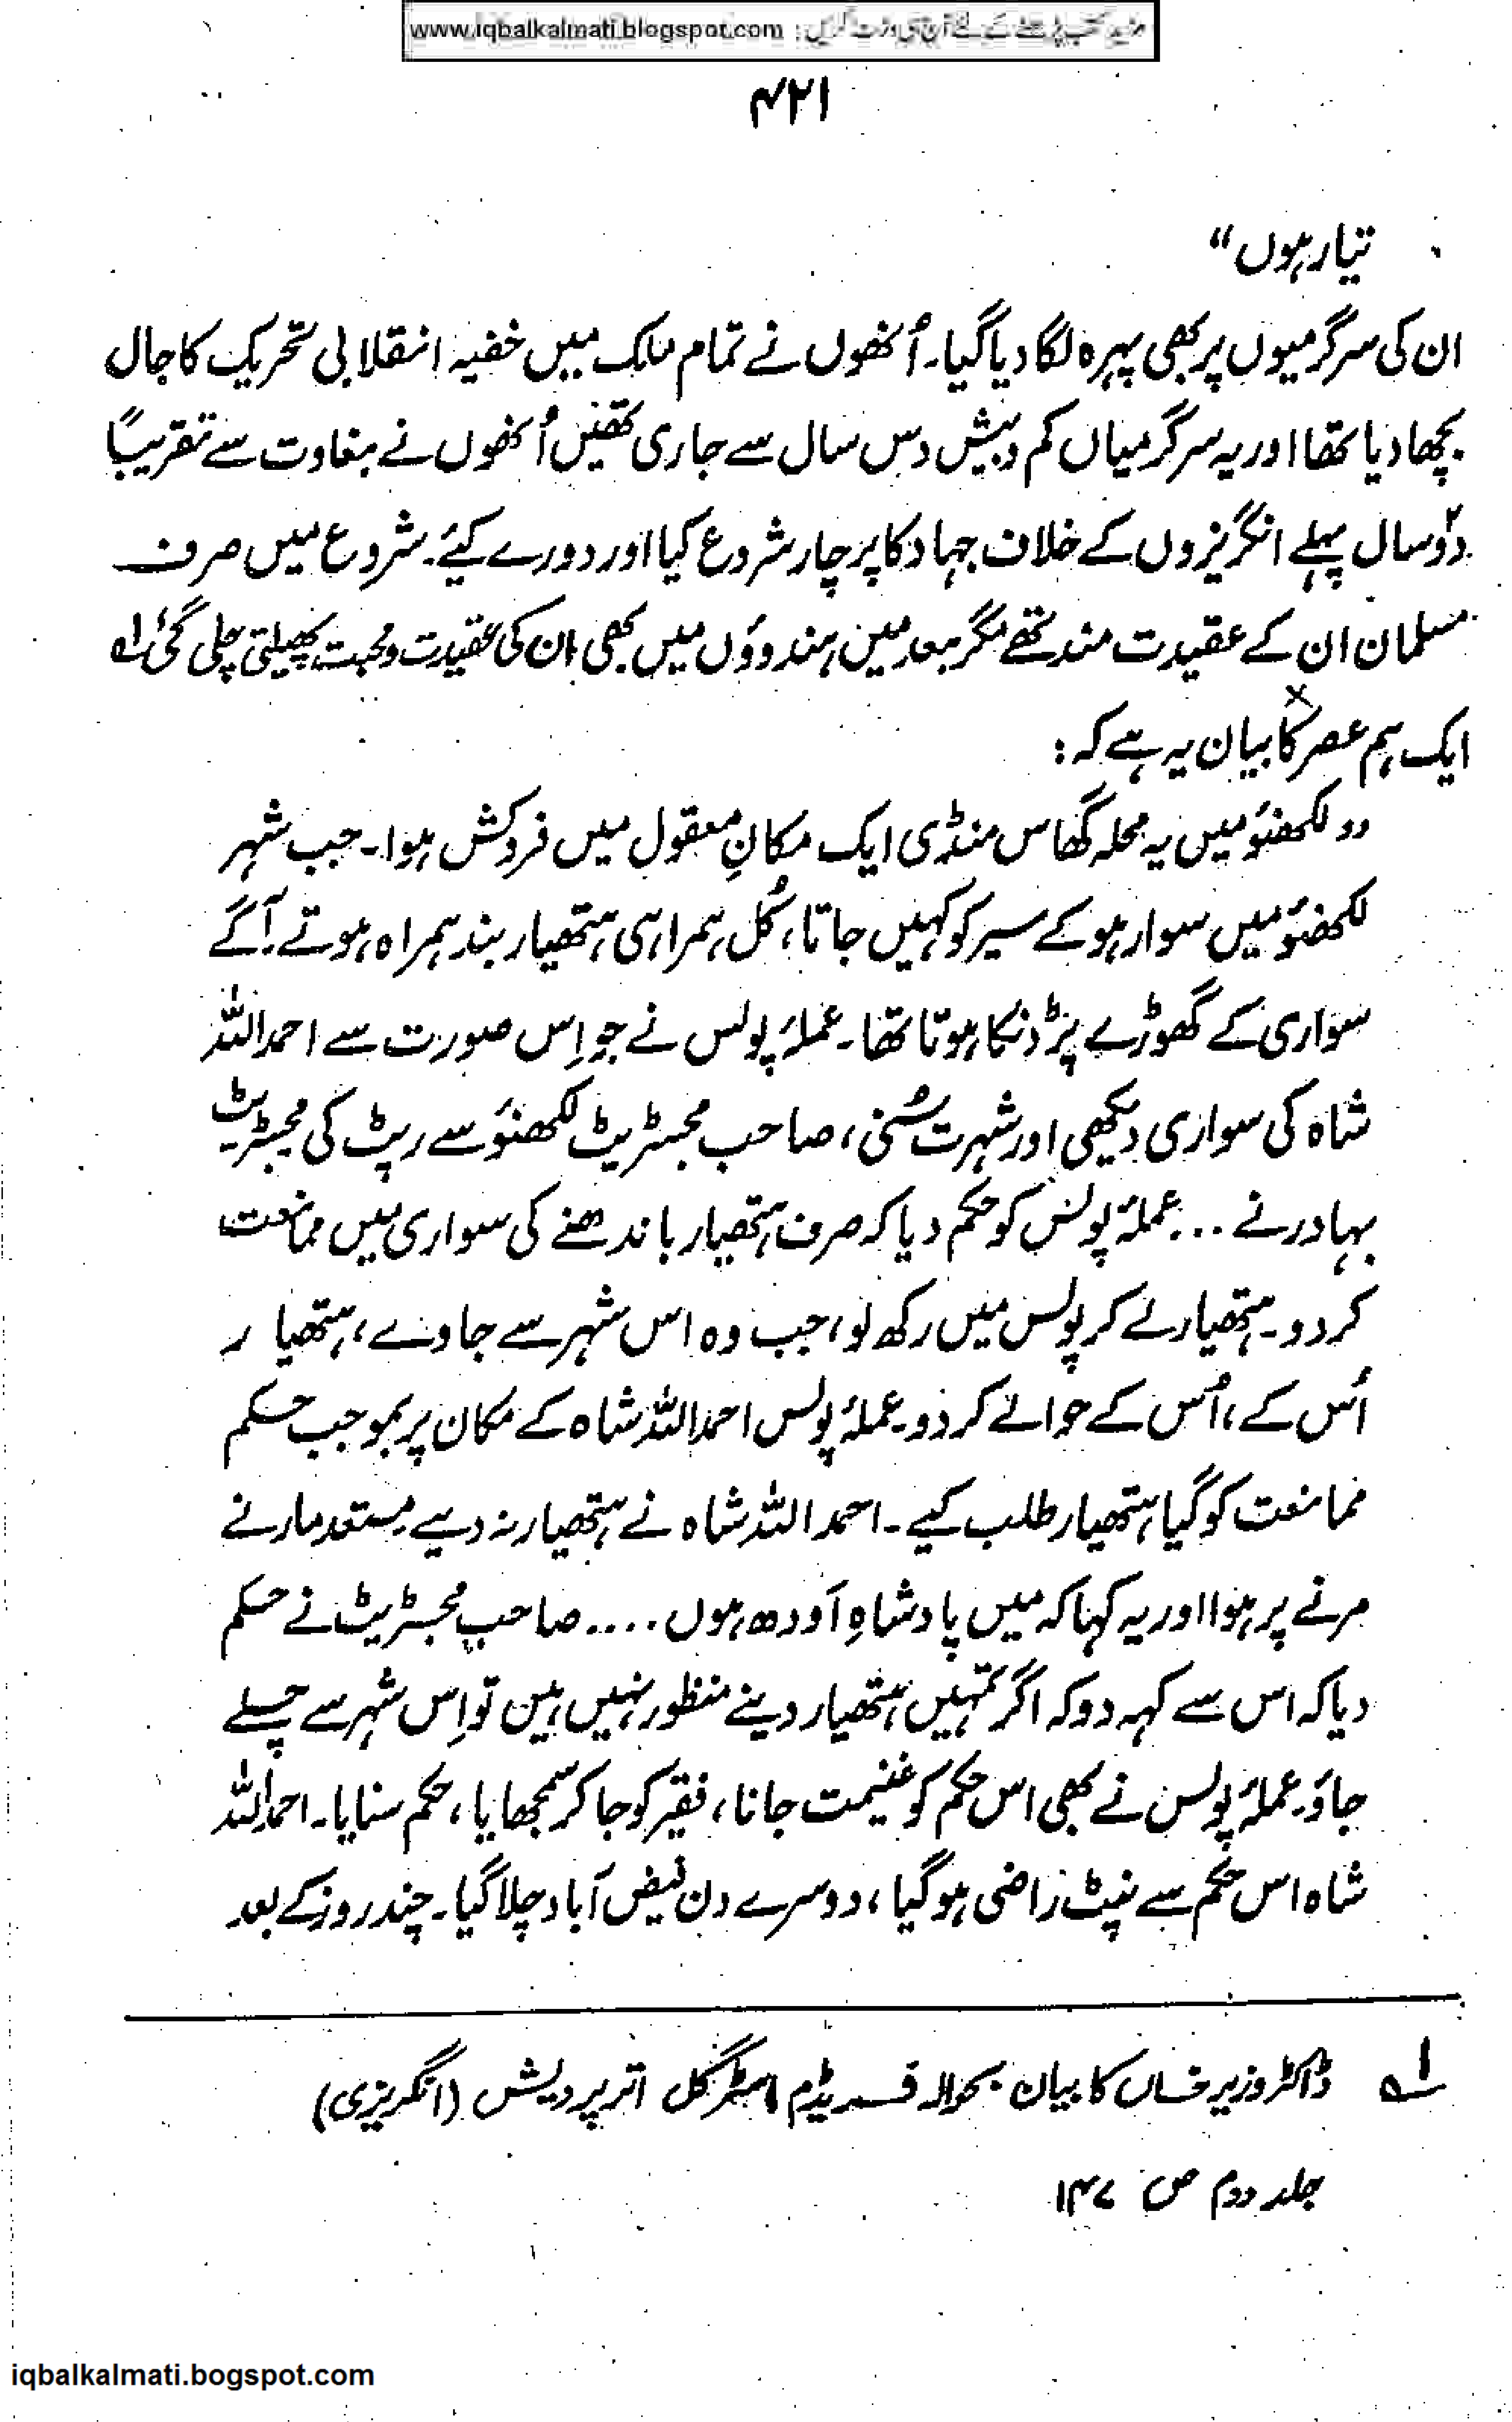 www.iqbalkalmati.blogspot.com : مزید کتب پڑھنے کے لئے آج ہی وزٹ کریں
۴۲۱
تیار ہوں “
ان کی سرگرمیوں پر بھی پہرہ لگا دیا گیا۔ اُنھوں نے تمام ملک میں خفیہ انقلابی تحریک کا جال
بچھا دیا تھا اور یہ سرگرمیاں کم و بیش دس سال سے جاری تھیں اُنھوں نے بغاوت سے تقریباً
دو۲ سال پہلے انگریزوں کے خلاف جہاد کا پرچار شروع کیا اور دورے کیئے۔ شروع میں صرف
مسلمان ان کے عقیدت مند تھے مگر بعد میں ہندوؤں میں بھی ان کی عقیدت و محبت پھیلتی چلی گئی ۱ه
ایک ہم عصر کا بیان یہ ہے کہ :
” لکھنؤ میں یہ محلہ گھاس منڈی ایک مکانِ معقول میں فروکش ہوا۔ جب شہر
لکھنؤ میں سوار ہو کے سیر کو کہیں جاتا، کُل ہمراہی ہتھیار بند ہمراہ ہوتے۔ آگے
سواری کے گھوڑے پر ڈنکا ہوتا تھا۔ عملۂ پولس نے جو اِس صورت سے احمد اللہ
شاہ کی سواری دیکھی اور شہرت سُنی، صاحب مجسٹریٹ لکھنؤ سے رپٹ کی مجسٹریٹ
بہادر نے ... عملۂ پولس کو حکم دیا کہ صرف ہتھیار باندھنے کی سواری میں ممانعت
کردو۔ ہتھیار لے کر پولس میں رکھ لو، جب وہ اس شہر سے جاوے، ہتھیار
اُس کے، اُس کے حوالے کردو۔ عملۂ پولس احمد اللہ شاہ کے مکان پر بموجب حکم
ممانعت کو گیا ہتھیار طلب کیے۔ احمد اللہ شاہ نے ہتھیار نہ دیے مستعد مارنے
مرنے پر ہوا اور یہ کہا کہ میں پادشاہِ اَودھ ہوں .... صاحبِ مجسٹریٹ نے حکم
دیا کہ اس سے کہہ دو کہ اگر تمہیں ہتھیار دینے منظور نہیں ہیں تو اِس شہر سے چلے
جاؤ۔ عملۂ پولس نے بھی اس حکم کو غنیمت جانا، فقیر کو جا کر سمجھایا، حکم سنایا۔ احمد اللہ
شاہ اس حکم سے نپٹ راضی ہو گیا، دوسرے دن فیض آباد چلا گیا۔ چند روز کے بعد
۱ه ڈاکٹر وزیر خاں کا بیان بحوالہ فریڈم اسٹرگل اتر پردیش (انگریزی)
جلد دوم ص ۱۴۷
iqbalkalmati.bogspot.com